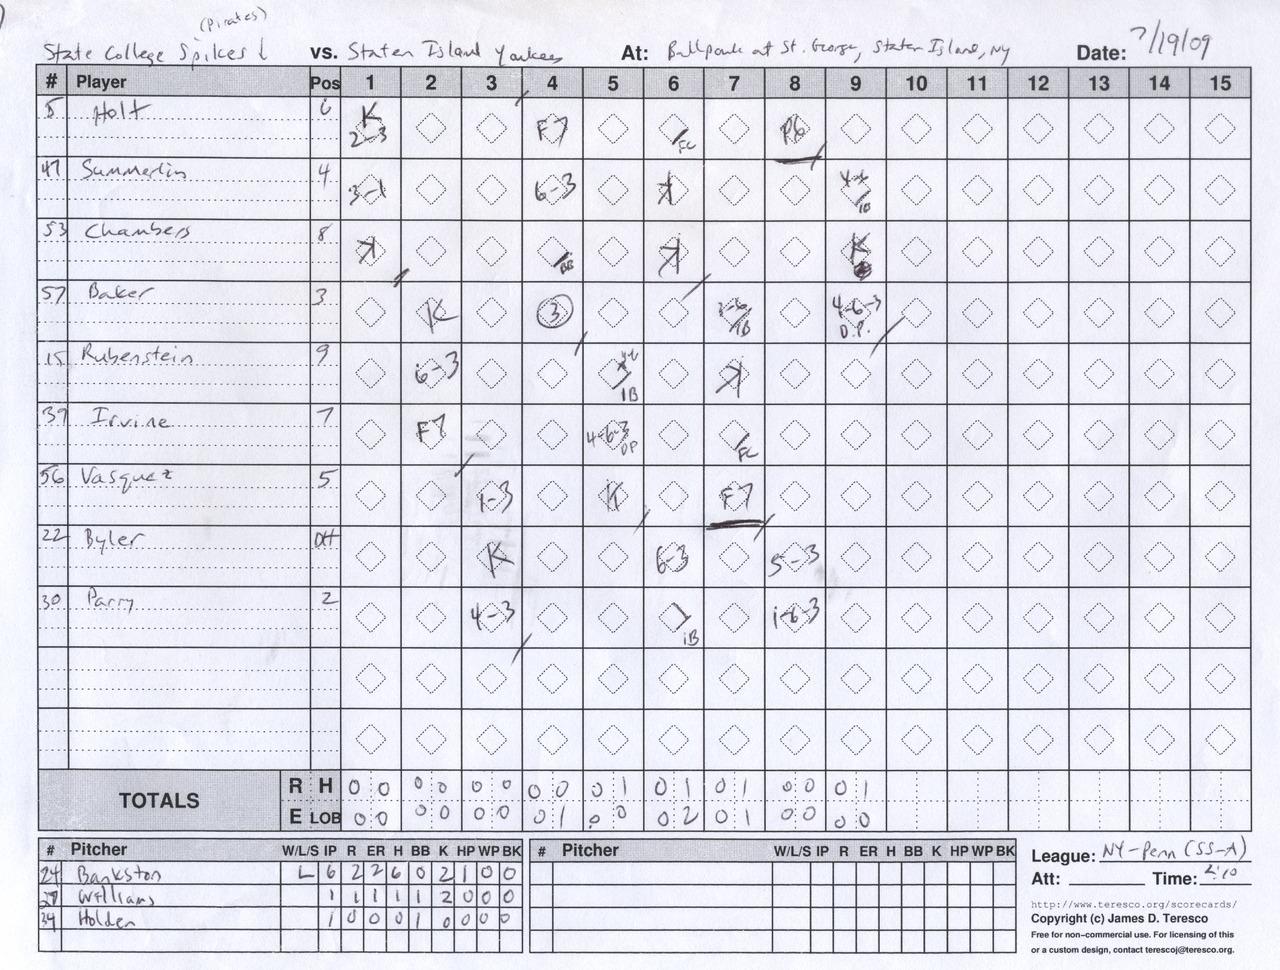 (Pirates)
State College Spikes vs. Staten Island Yankees At: Ballpark at St. George, Staten Island, NY Date: 7/19/09
# Player Pos 1 2 3 4 5 6 7 8 9 10 11 12 13 14 15
5 Holt 6 K 2-3 F7 FC P6
47 Summerlin 4 3-1 6-3 K 1B
53 Chambers 8 K BB K K
57 Baker 3 K 3 1B 4-6-3 D.P.
15 Rubenstein 9 6-3 1B K
39 Irvine 7 F7 4-6-3 DP FC
56 Vasquez 5 1-3 K F7
22 Byler DH K 6-3 5-3
30 Parry 2 4-3 1B 1-6-3
TOTALS R H 0 0 0 0 0 0 0 0 0 1 0 1 0 1 0 0 0 1
E LOB 0 0 0 0 0 0 0 1 0 0 0 2 0 1 0 0 0 0
# Pitcher W/L/S IP R ER H BB K HP WP BK # Pitcher W/L/S IP R ER H BB K HP WP BK
24 Bankston L 6 2 2 6 0 2 1 0 0
27 Williams 1 1 1 1 1 2 0 0 0
34 Holden 1 0 0 0 1 0 0 0 0
League: NY-Penn (SS-A)
Att: Time: 2:10
http://www.teresco.org/scorecards/
Copyright (c) James D. Teresco
Free for non-commercial use. For licensing of this
or a custom design, contact terescoj@teresco.org.